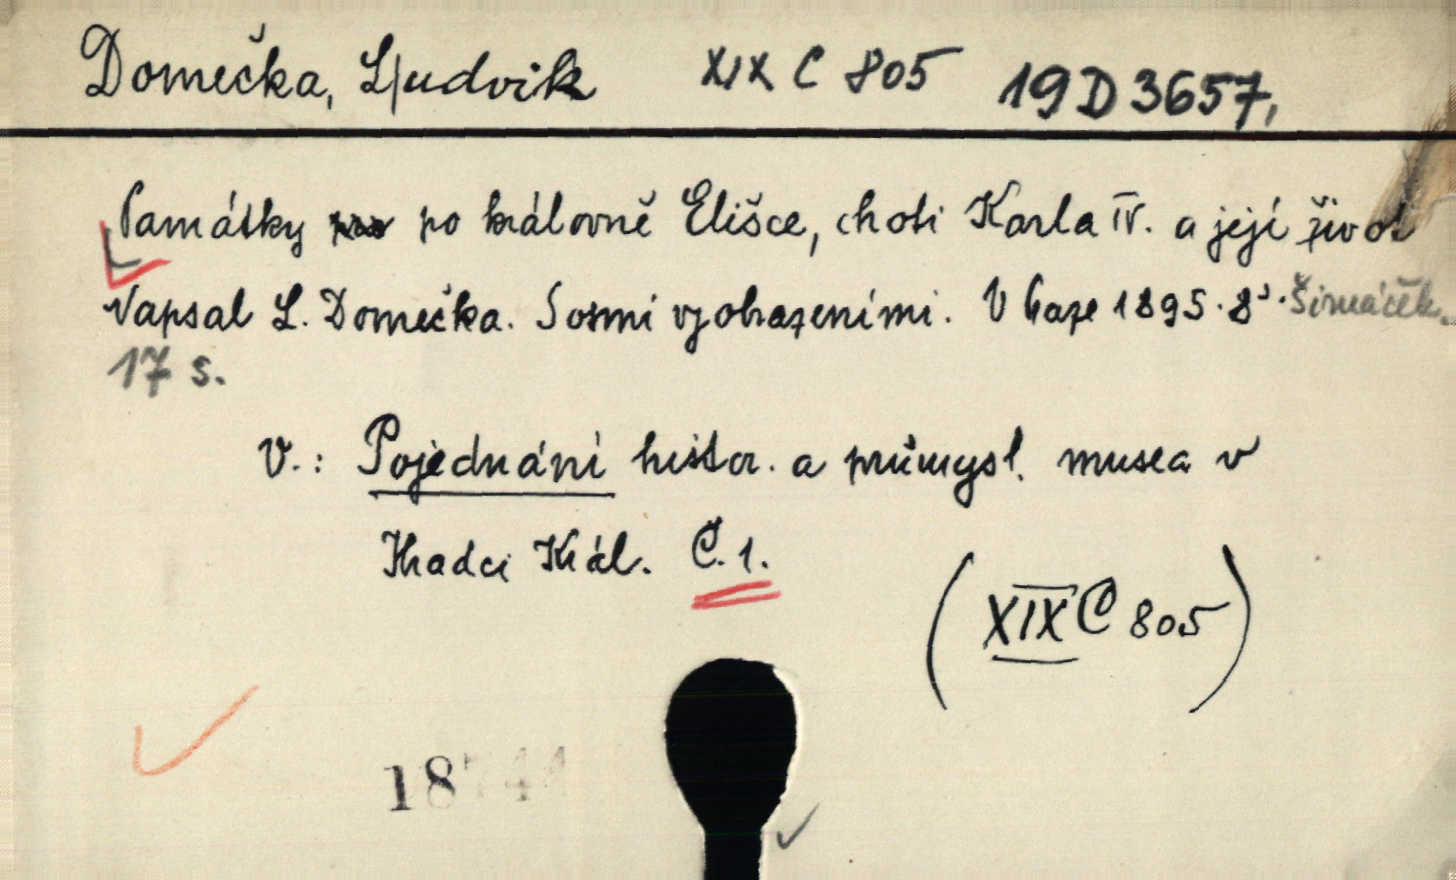 Domečka, Ljudvik XIX C 805 19 D 3657,
Památky po královně Elišce, choti Karla IV. a její život
Napsal L. Domečka. S osmi vyobrazeními. V Praze 1895. 8°. Šimáček.
17 s.
V.: Pojednání histor. a průmysl. musea v
Hradci Král. Č. 1.
(XIX C 805)
18744